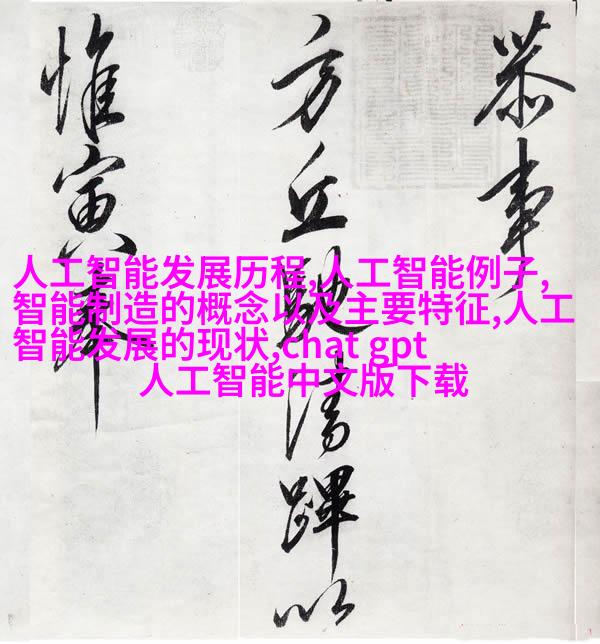 恭事
方丘馳清蹕以
惟寅
人工智能发展历程,人工智能例子,
智能制造的概念以及主要特征,人工
智能发展的现状,chat gpt
人工智能中文版下载